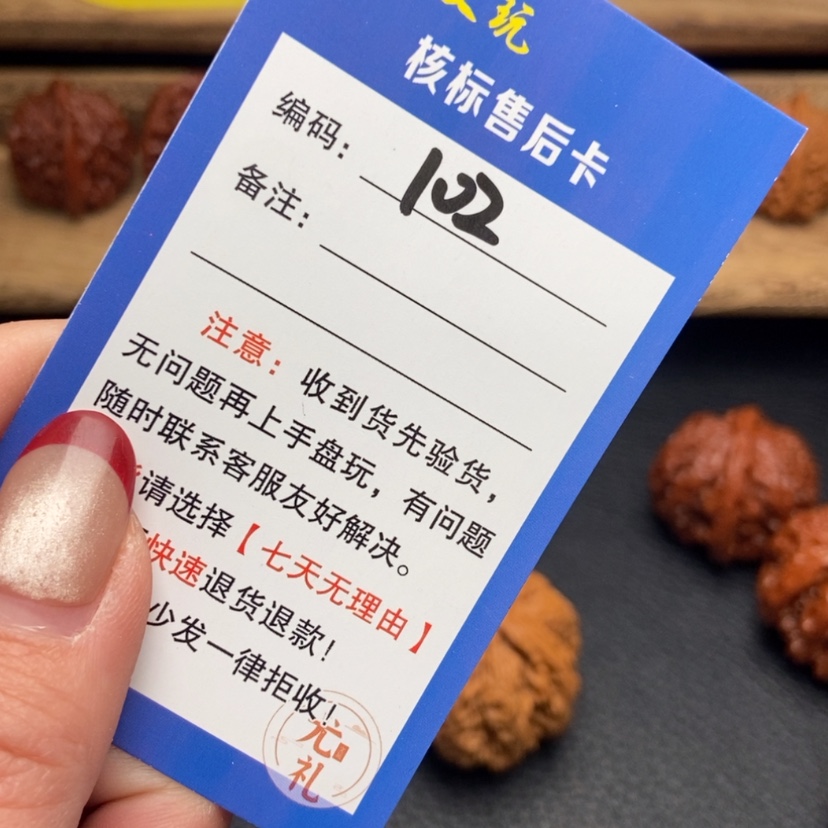 玩
核标售后卡
编码: 102
备注:
注意: 收到货先验货,
无问题再上手盘玩, 有问题
随时联系客服友好解决。
请选择【七天无理由】
快速退货退款!
少发一律拒收!
元
礼